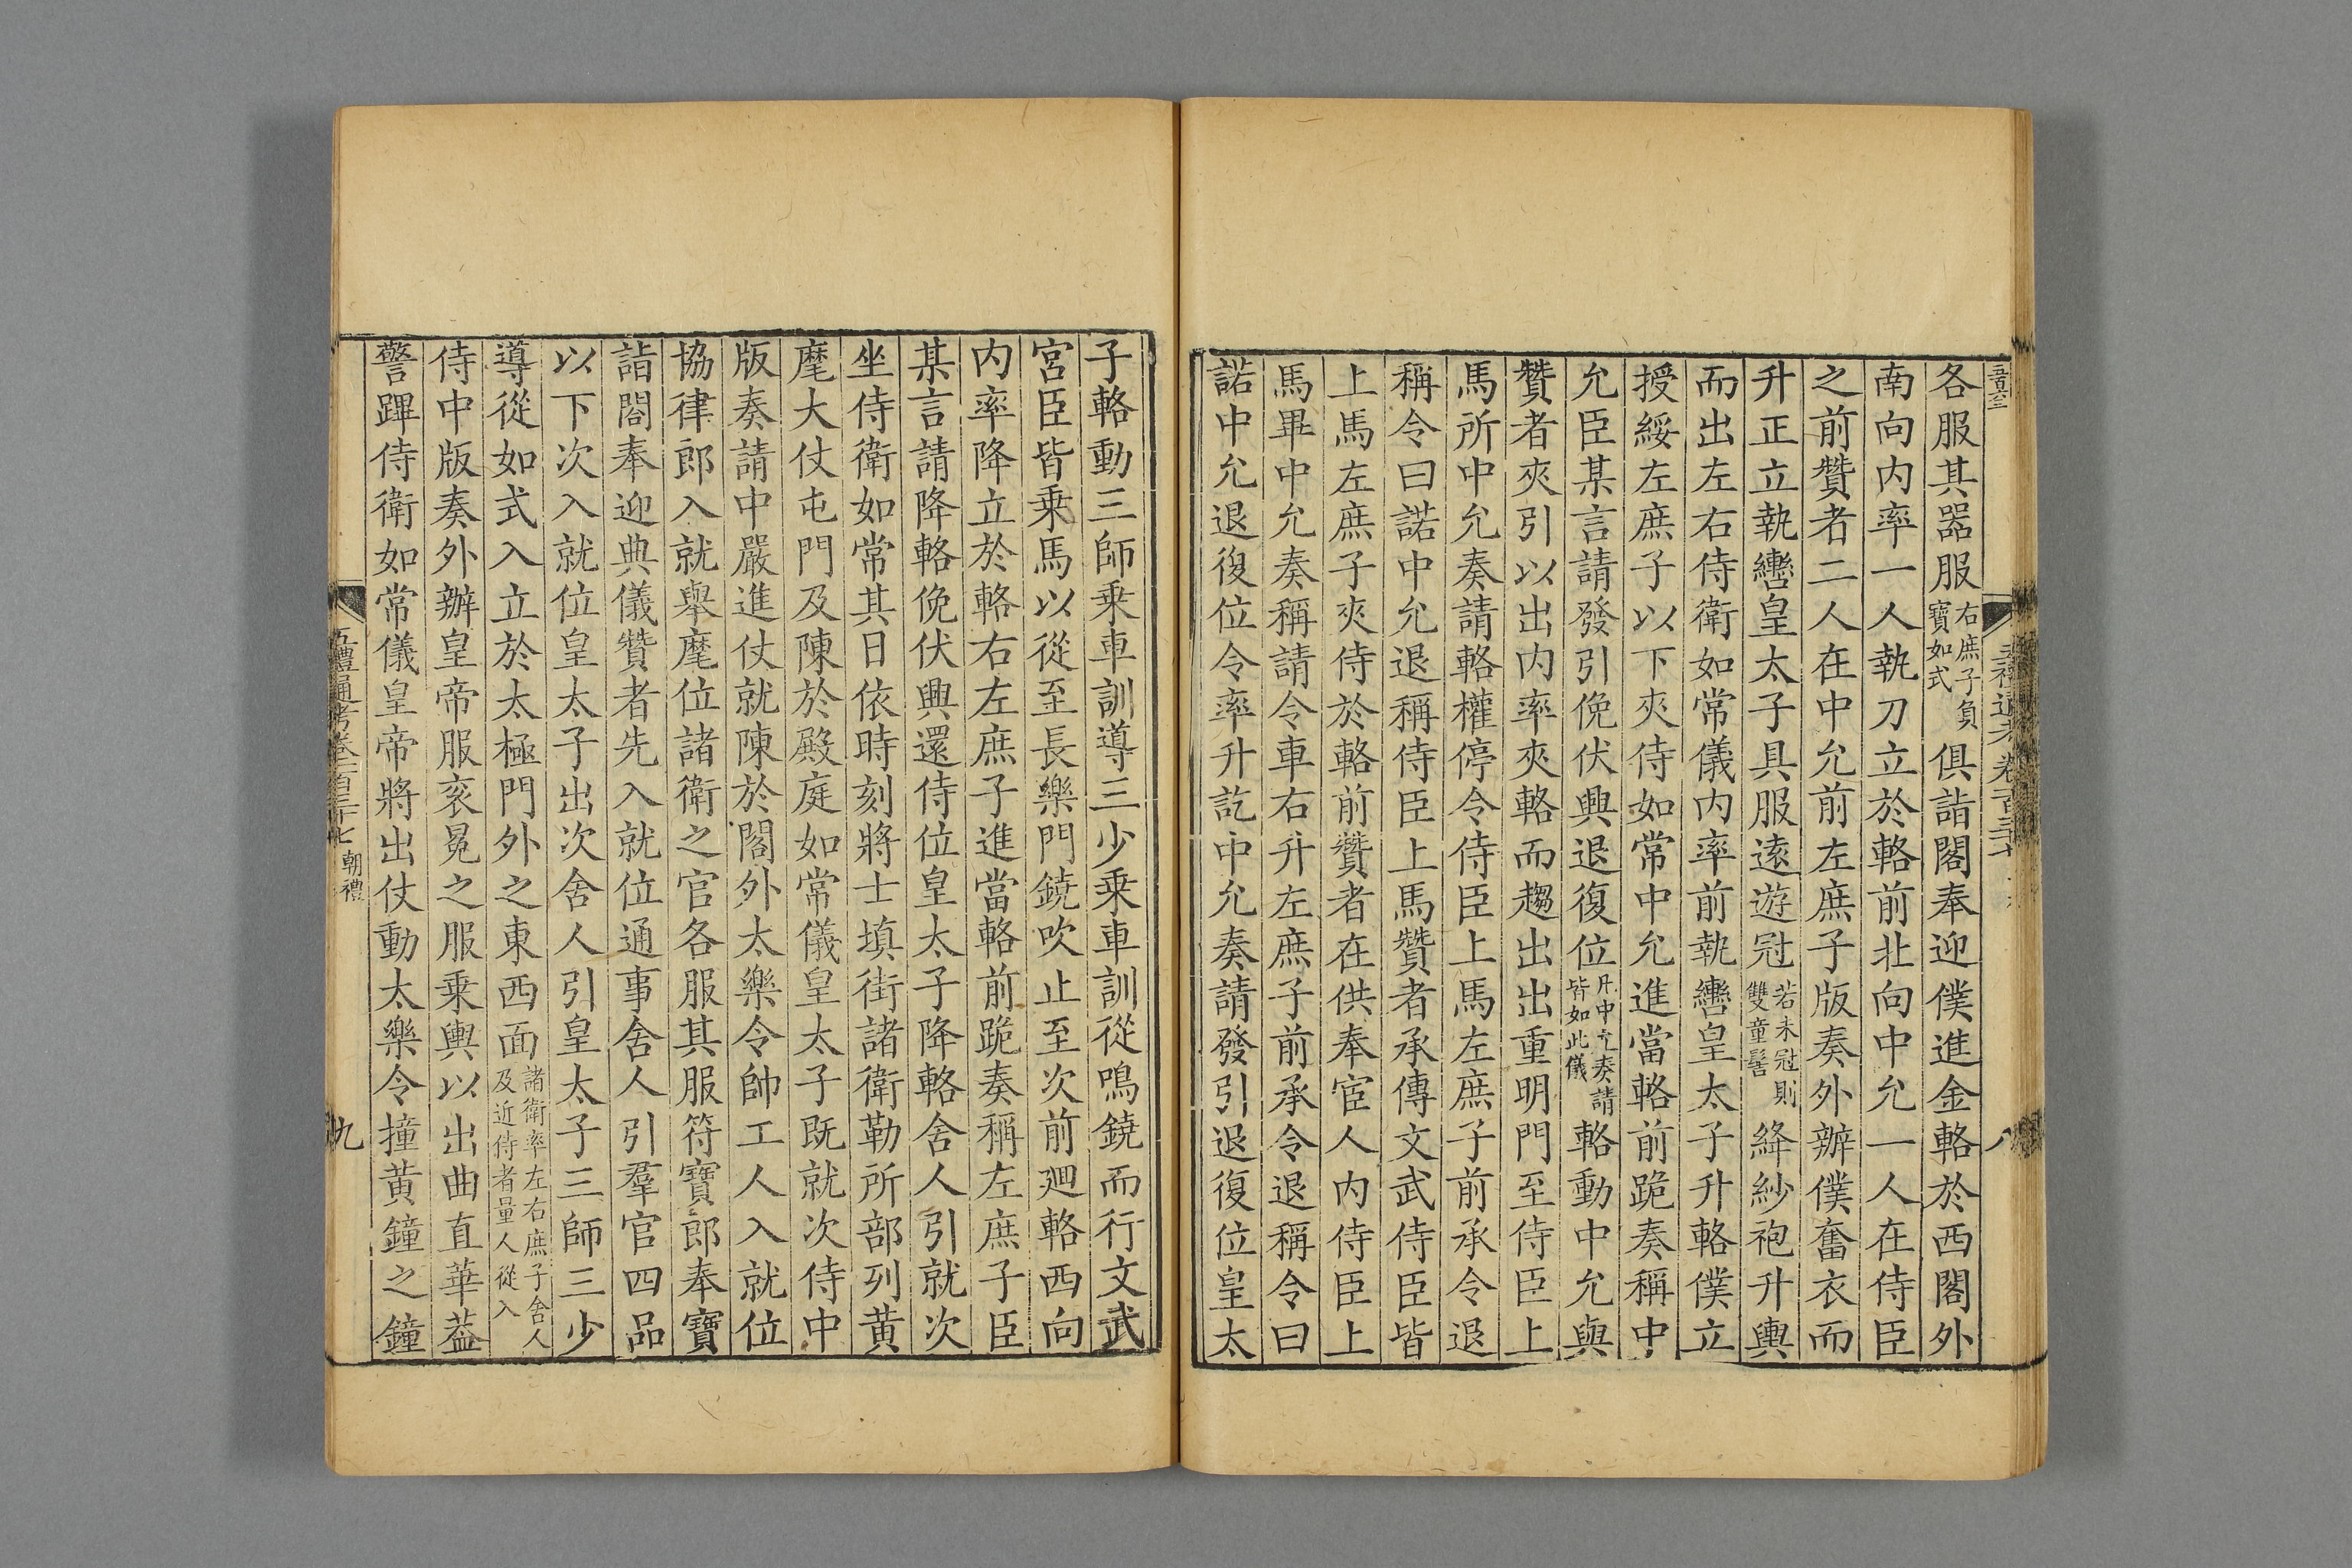 各服其器服右庶子負寶如式俱詣閤奉迎僕進金輅於西閤外
南向内率一人執刀立於輅前北向中允一人在侍臣
之前贊者二人在中允前左庶子版奏外辦僕奮衣而
升正立執轡皇太子具服遠遊冠若未冠則雙童髻絳紗袍升輿
而出左右侍衛如常儀内率前執轡皇太子升輅僕立
授綏左庶子以下夾侍如常中允進當輅前跪奏稱中
允臣某言請發引俛伏興退復位凡中允奏請皆如此儀輅動中允與
贊者夾引以出内率夾輅而趨出出重明門至侍臣上
馬所中允奏請輅權停令侍臣上馬左庶子前承令退
稱令曰諾中允退稱侍臣上馬贊者承傳文武侍臣皆
上馬左庶子夾侍於輅前贊者在供奉宦人内侍臣上
馬畢中允奏稱請令車右升左庶子前承令退稱令曰
諾中允退復位令率升訖中允奏請發引退復位皇太
子輅動三師乗車訓導三少乗車訓從鳴鐃而行文武
宮臣皆乗馬以從至長樂門鐃吹止至次前廻輅西向
内率降立於輅右左庶子進當輅前跪奏稱左庶子臣
某言請降輅俛伏興還侍位皇太子降輅舍人引就次
坐侍衛如常其日依時刻將士填街諸衛勒所部列黄
麾大仗屯門及陳於殿庭如常儀皇太子既就次侍中
版奏請中嚴進仗就陳於閤外太樂令帥工人入就位
協律郎入就舉麾位諸衛之官各服其服符寶郎奉寶
詣閤奉迎典儀贊者先入就位通事舍人引羣官四品
以下次入就位皇太子出次舍人引皇太子三師三少
導從如式入立於太極門外之東西面諸衛率左右庶子舍人及近侍者量人從入
侍中版奏外辦皇帝服衮冕之服乗輿以出曲直華葢
警蹕侍衛如常儀皇帝將出仗動太樂令撞黄鐘之鐘
五禮通考卷一百三十七 朝禮
九